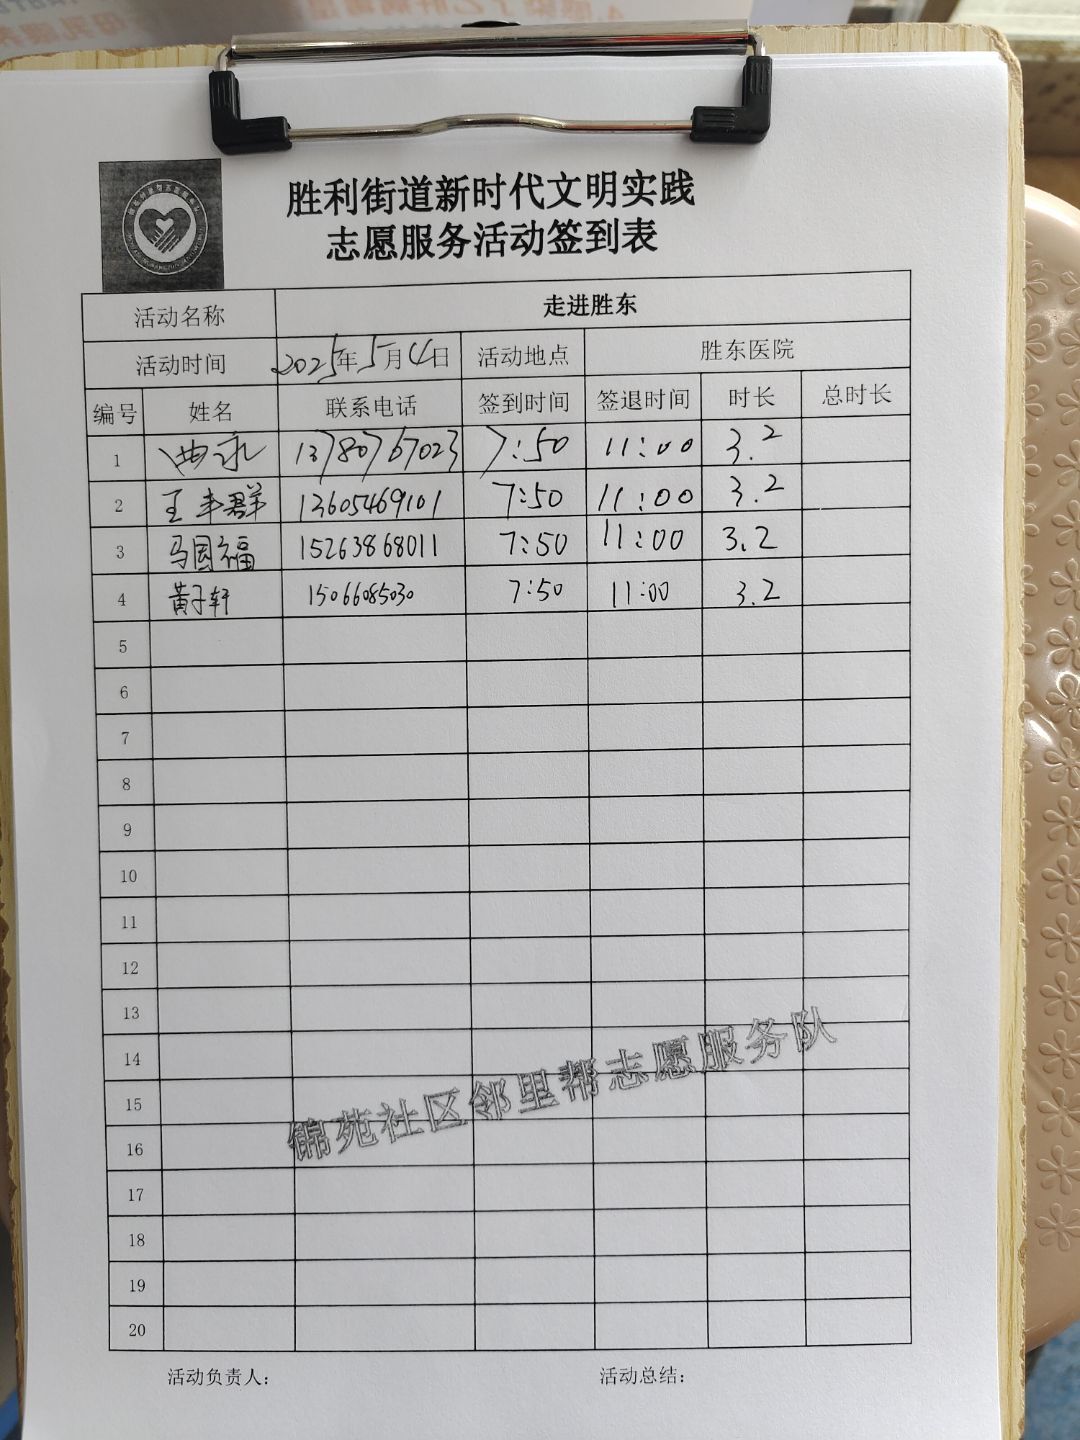 胜利街道新时代文明实践
志愿服务活动签到表
活动名称 走进胜东
活动时间 2025年5月4日 活动地点 胜东医院
编号 姓名 联系电话 签到时间 签退时间 时长 总时长
1 曲永 13780767023 7:50 11:00 3.2
2 王丰群 13605469101 7:50 11:00 3.2
3 马国福 15263868011 7:50 11:00 3.2
4 黄子轩 15066085030 7:50 11:00 3.2
5
6
7
8
9
10
11
12
13
14
15
16
17
18
19
20
锦苑社区邻里帮志愿服务队
活动负责人： 活动总结：